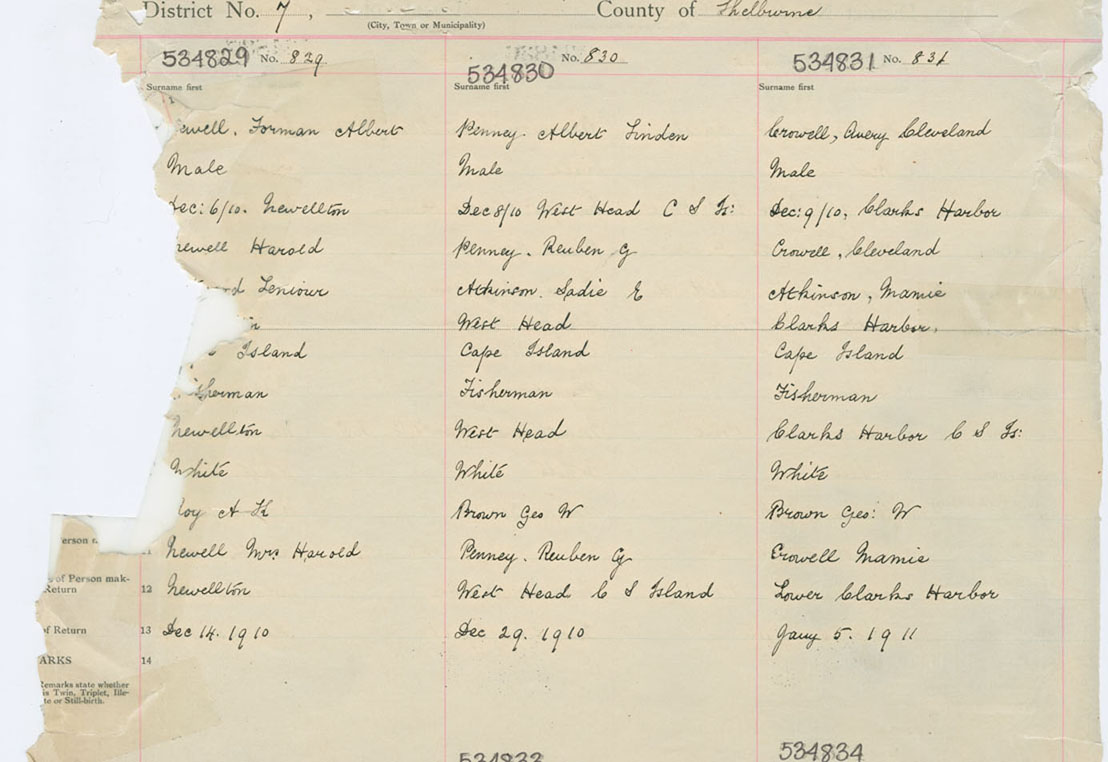 District No. 7, County of Shelburne
(City, Town or Municipality)
534829 No. 829 534830 No. 830 534831 No. 831
Surname first Surname first Surname first
ewell, Forman Albert Penney Albert Linden Crowell, Avery Cleveland
Male Male Male
Dec: 6/10. Newellton Dec 8/10 West Head C S Is: Dec: 9/10, Clarks Harbor
newell Harold Penney. Reuben G Crowell, Cleveland
Atkinson. Sadie E Atkinson, Mamie
West Head Clarks Harbor,
Island Cape Island Cape Island
isherman Fisherman Fisherman
Newellton West Head Clarks Harbor C S Is:
White White White
oy A K Brown Geo W Brown Geo: W
erson
11 Newell Mrs Harold Penney. Reuben G Crowell Mamie
of Person mak-
Return 12 Newellton West Head C S Island Lower Clarks Harbor
of Return 13 Dec 14. 1910 Dec 29. 1910 Jany 5. 1911
ARKS 14
Remarks state whether
is Twin, Triplet, Ille-
te or Still-birth.
534833 534834